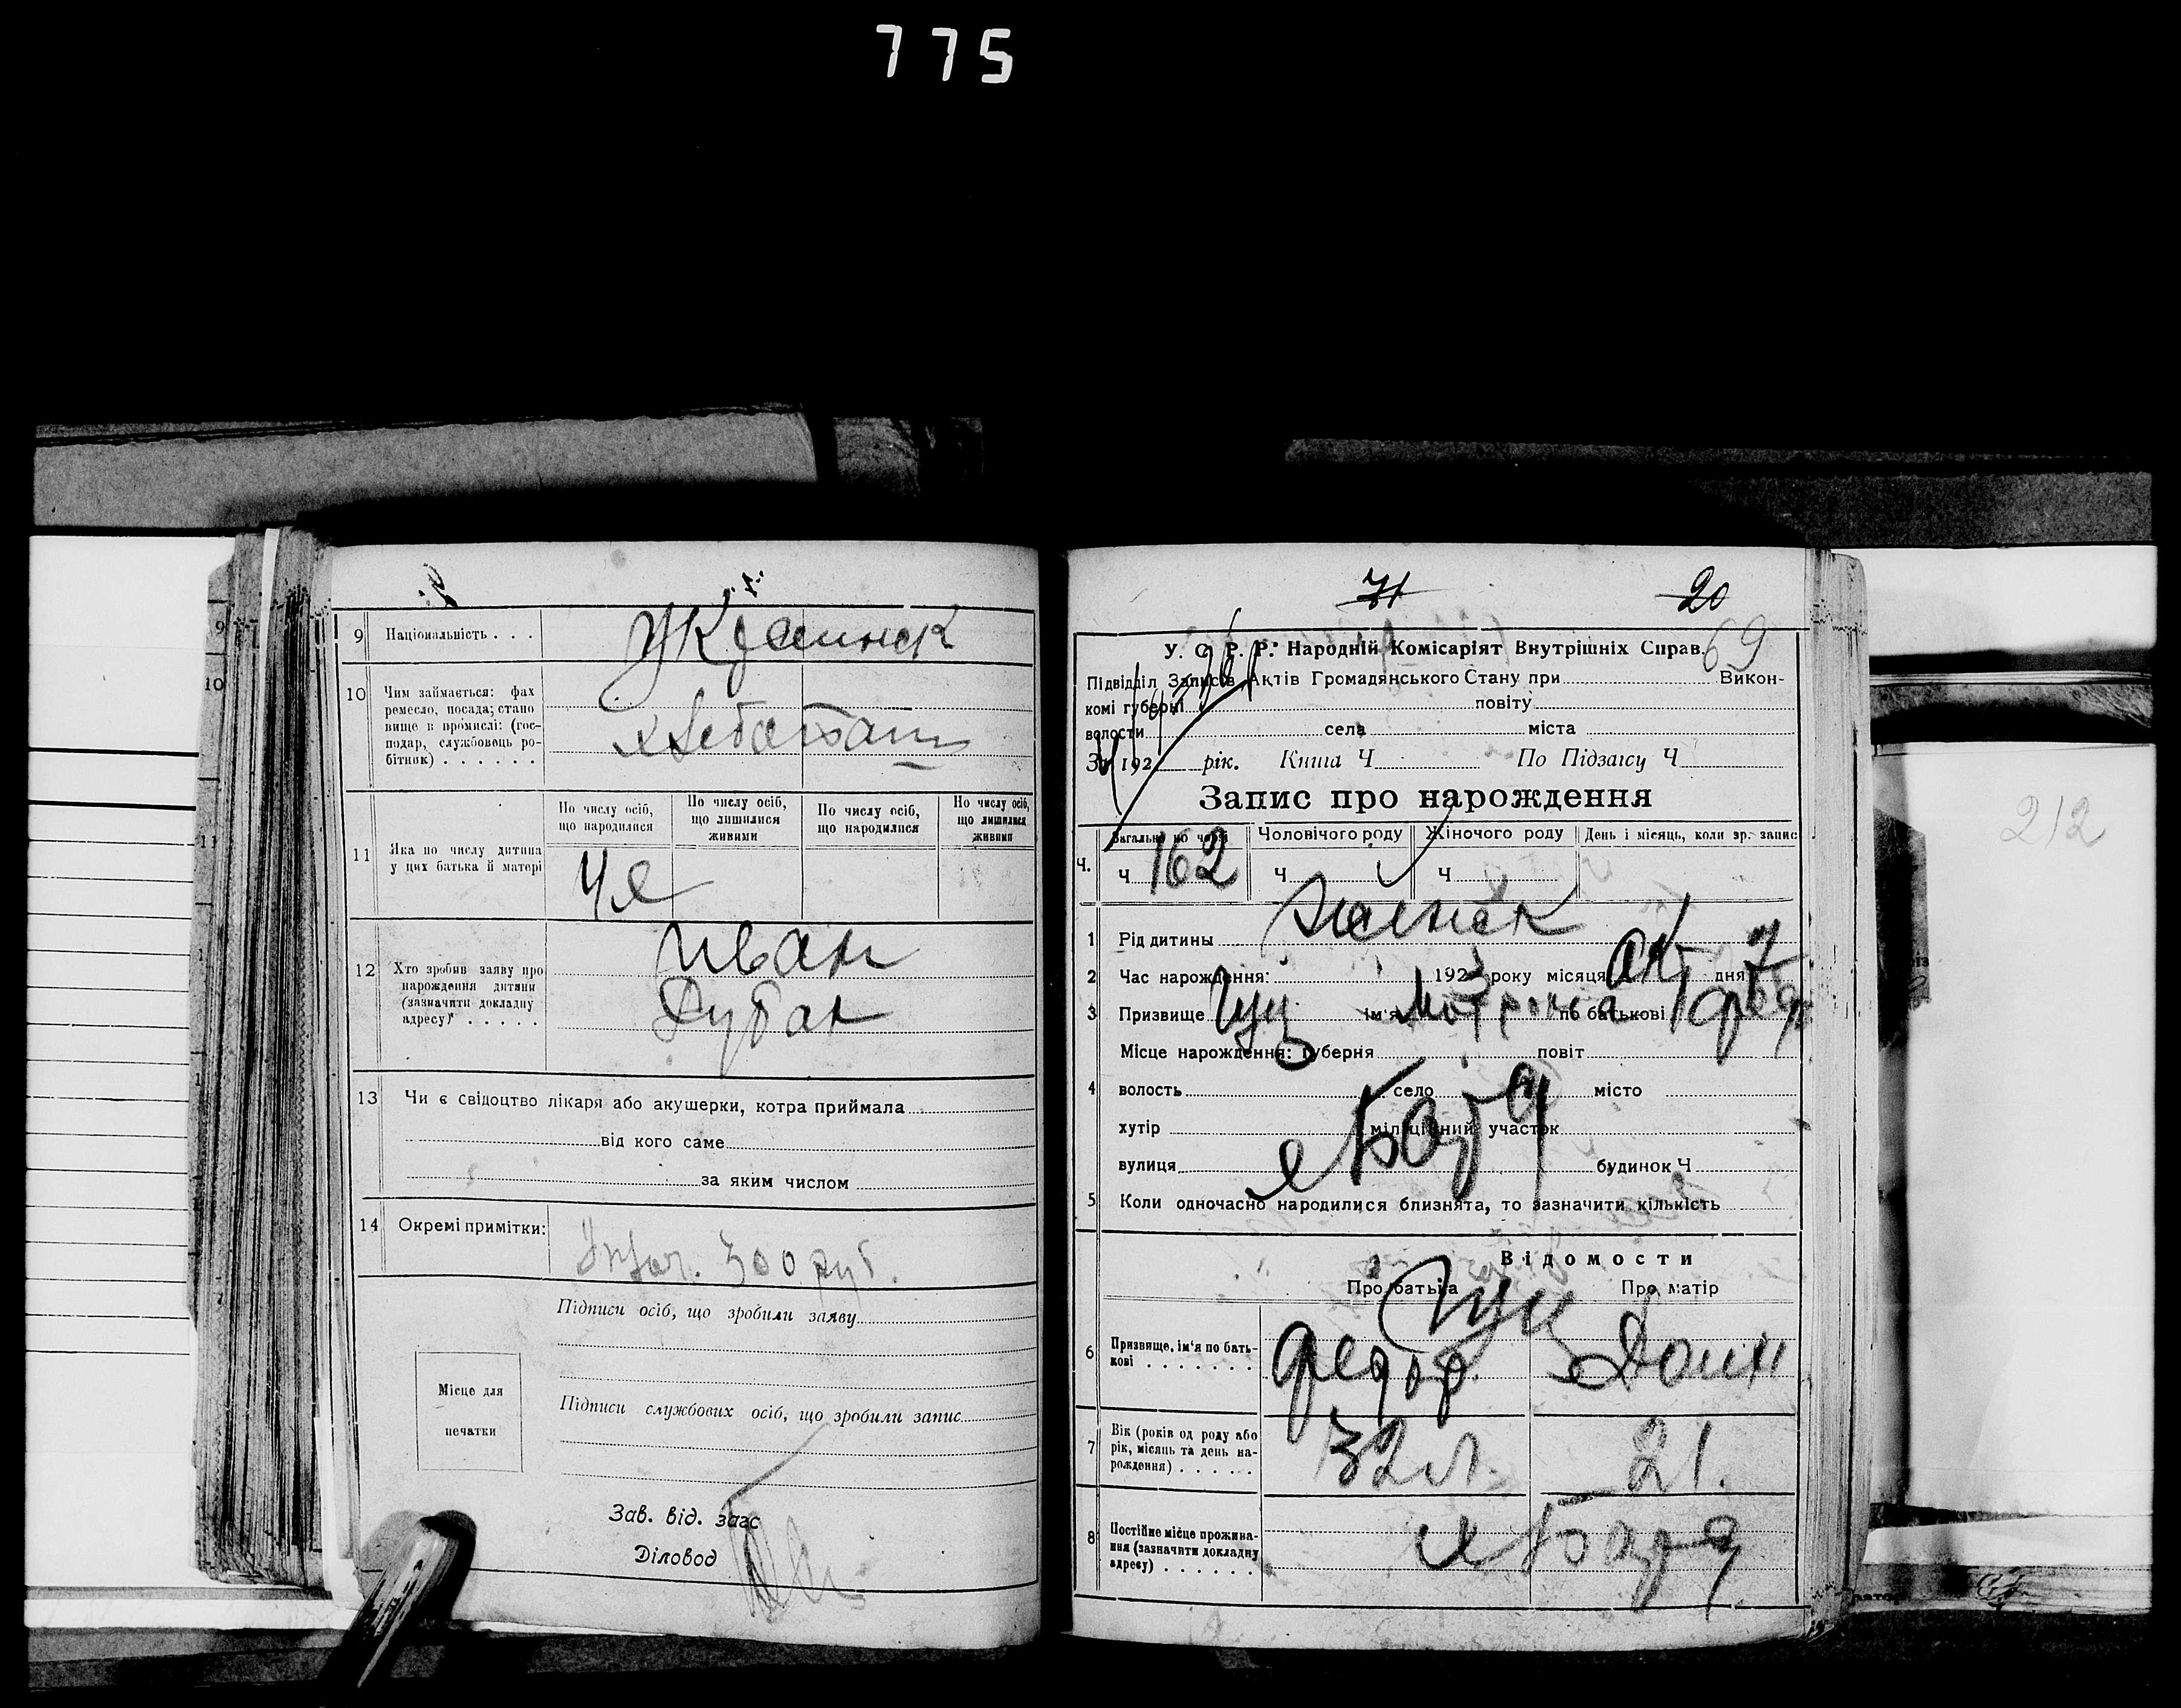 775
9 Національність . . .
Украинск
10 Чим займається: фах
ремесло, посада; стано
вище в промислі: (гос-
подар, службовець ро-
бітник) . . . . . .
11 Яка по числу дитина
у цих батька й матері
По числу осіб, що народилися
По числу осіб, що лишилися живими
По числу осіб, що народилися
По числу осіб, що лишилися живими
4я
12 Хто зробив заяву про
нарождення дитини
(зазначити докладну
адресу) . . . . .
Иван
Дубак
13 Чи є свідоцтво лікаря або акушерки, котра приймала
від кого саме
за яким числом
14 Окремі примітки:
300 руб.
Підписи осіб, що зробили заяву
Місце для
печатки
Підписи службових осіб, що зробили запис
Зав. від. загс
Діловод
71 20
69
У. С. Р. Р. Народній Комісаріят Внутрішніх Справ.
Підвідділ Записів Актів Громадянського Стану при Викон-
комі губерні повіту
волости села міста
За 192 рік. Книга Ч По Підзагсу Ч
Запис про нарождення
Ч. Загальне по черзі Чоловічого роду Жіночого роду День і місяць, коли зр. запис
Ч 162 Ч Ч
1 Рід дитини женск
2 Час нарождення: 1923 року місяця окт дня 7
3 Призвище Гуц ім'я Мотрона по батькові Фед
Місце нарождення: губерня повіт
4 волость село місто
хутір міліційний участок
вулиця будинок Ч
5 Коли одночасно народилися близнята, то зазначити кількість
Відомости
Про батька Про матір
Гуц
6 Призвище, ім'я по бать-
кові . . . . . . .
Федор. Домн
7 Вік (років од роду або
рік, місяць та день на-
рождення) . . . . .
32 л. 21.
8 Постійне місце прожива-
ння (зазначити докладну
адресу) . . . . . .
212